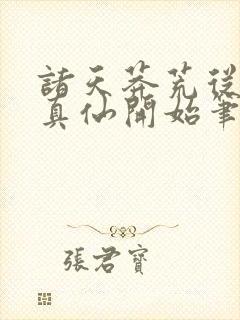 諸天莽荒從
真仙開始筆
張君寶